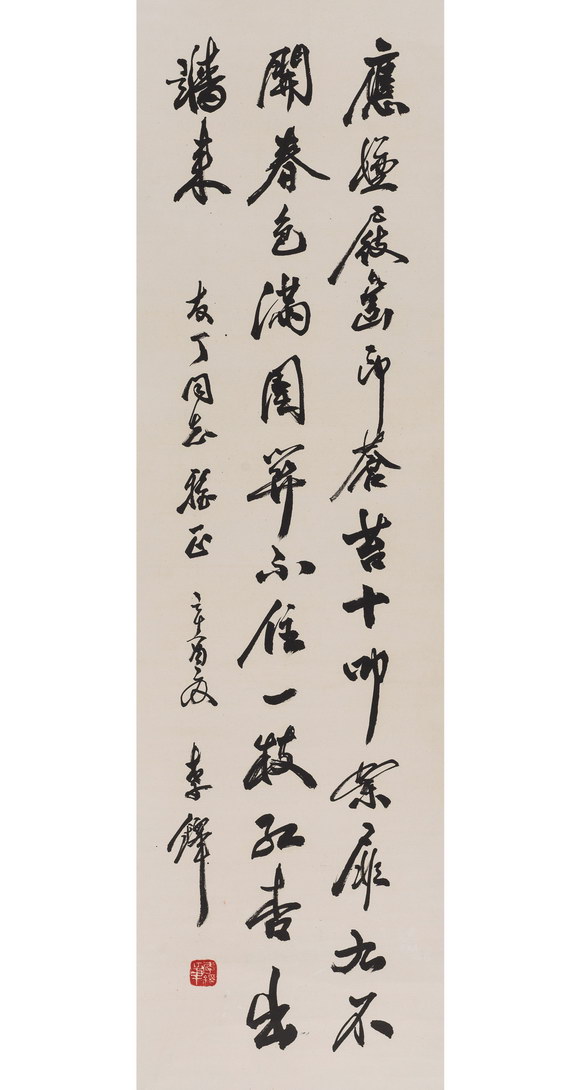 應嫌屐齒印蒼苔十叩柴扉九不
開春色滿園關不住一枝紅杏出
牆來 友丁同志雅正 辛酉夏 李鐸